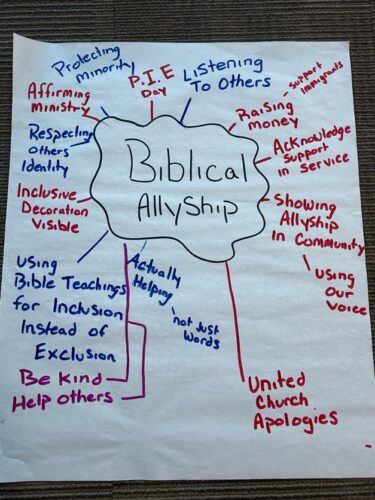 Protecting
minority
P.I.E
Day
Listening
To Others
Affirming
Ministry
Raising
money
- support
immigrants
Respecting
Others
Identity
Biblical
Allyship
Acknowledge
Support
in Service
Inclusive
Decoration
Visible
Showing
Allyship
In Community
\ using
Our
Voice
using
Bible Teachings
for Inclusion
Instead of
Exclusion
Actually
Helping
\ not Just
Words
Be kind
Help others
United
Church
Apologies